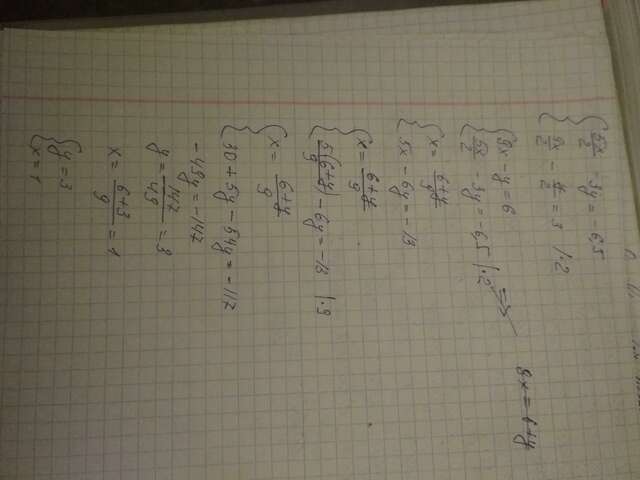 { 5x/2 - 3y = 6,5
9x/2 - y/2 = 3 |·2
{ 9x - y = 6
5x/2 - 3y = -6,5 |·2 =>
9x = 6+y
{ x = (6+y)/9
5x - 6y = -13
{ x = (6+y)/9
5(6+y)/9 - 6y = -13 |·9
{ x = (6+y)/9
30 + 5y - 54y = -117
-49y = -147
y = 147/49 = 3
x = (6+3)/9 = 1
{ y = 3
x = 1